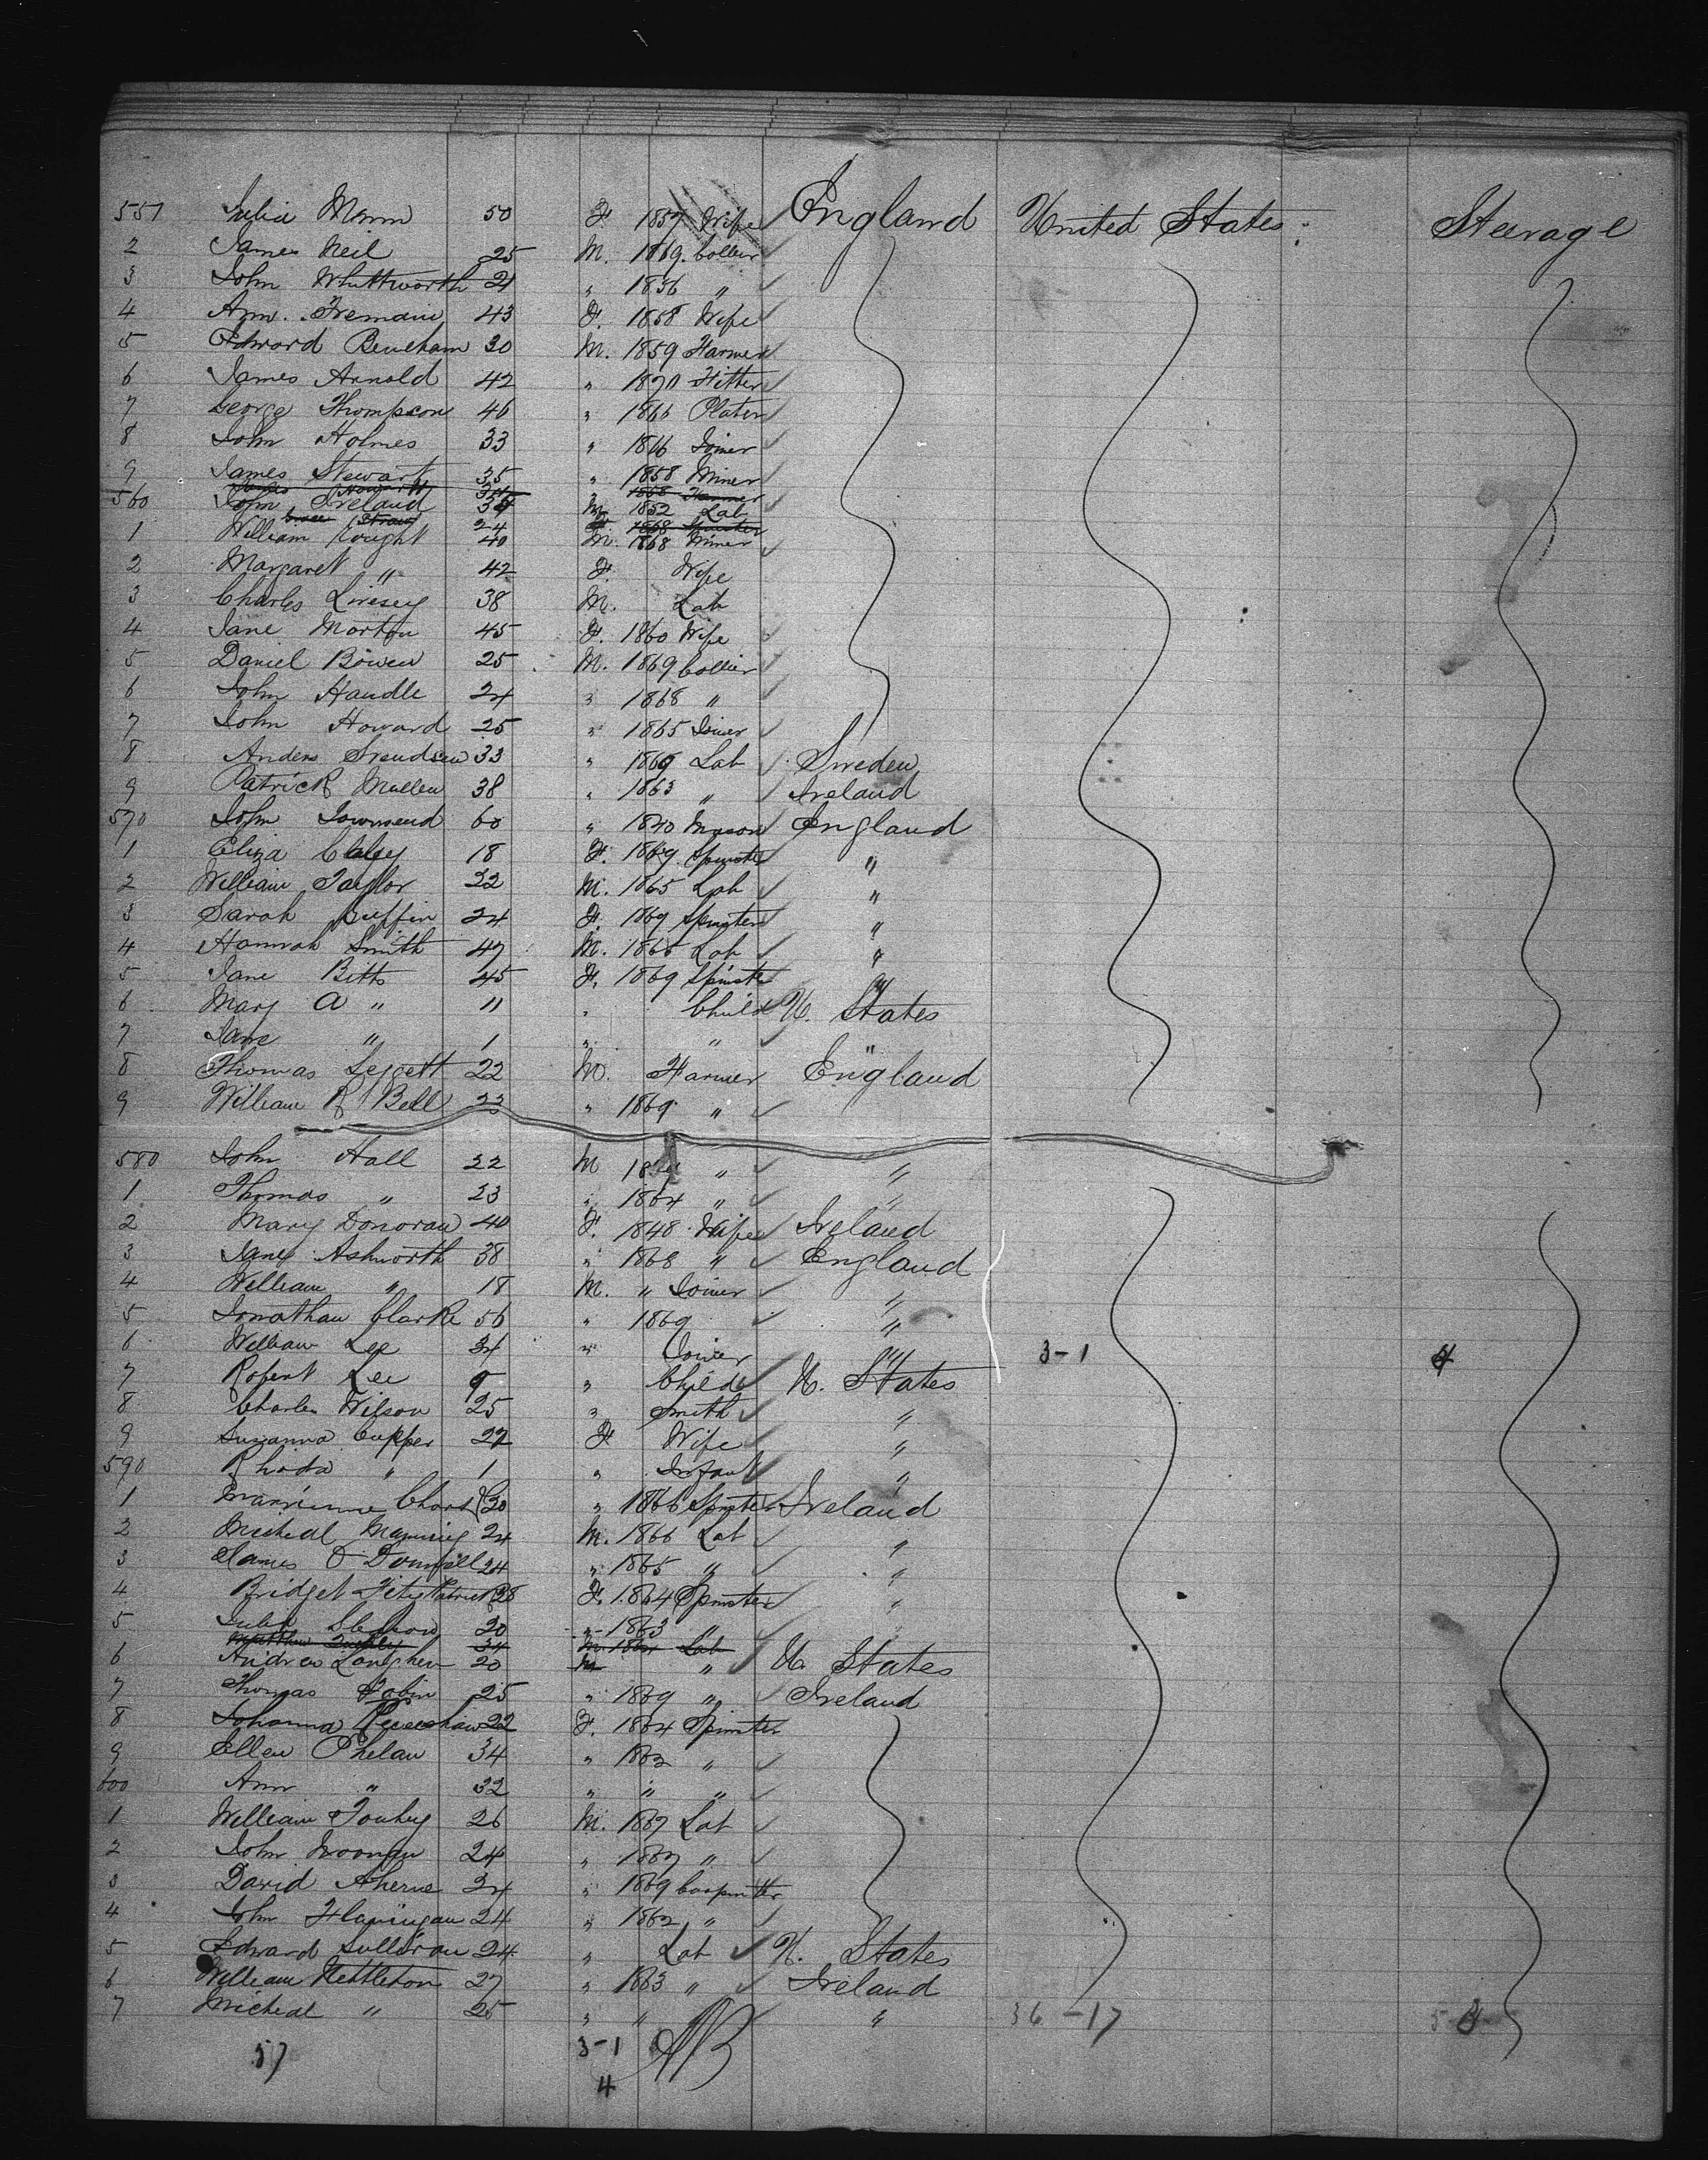 551 Julia Mann 50 F. 1857 Wife England United States Steerage
2 James Neil 25 M. 1869. Collier
3 John Whittworth 21 " 1836 "
4 Ann. Tremain 43 F. 1858 Wife
5 Edward Beucham 30 M. 1859 Farmer
6 James Arnold 42 " 1870 Fitter
7 George Thompson 46 " 1866 Plater
8 John Holmes 33 " 1866 Joiner
9 James Stewart 35 " 1858 Miner
James Howarth 34 " 1868 Farmer
560 John Ireland 34 M. 1852 Lab
24 F. 1868 Spinster
1 William Rought 40 M. 1868 Miner
2 Margaret " 42 F. Wife
3 Charles Livesey 38 M. Lab
4 Jane Morton 45 F. 1860 Wife
5 Daniel Bowen 25 M. 1869 Collier
6 John Handle 24 " 1868 "
7 John Howard 25 " 1865 Joiner
8 Anders Svendsen 33 " 1869 Lab Sweden
9 Patrick Mullen 38 " 1863 " Ireland
570 John Townsend 60 " 1840 Mason England
1 Eliza 18 F. 1869. Spinster "
2 William Taylor 22 M. 1865 Lab "
3 Sarah Guffin 24 F. 1869 Spinster "
4 Hannah Smith 47 M. 1866 Lab "
5 Jane Bitts 45 F. 1869 Spinster "
6 Mary A " 11 " Child U. States
7 Jane " 1 " " "
8 Thomas Leggett 22 M. Farmer England
9 William R Bell 23 " 1869 "
580 John Hall 22 M " "
1 Thomas " 23 " 1864 " "
2 Mary Donovan 40 F. 1848 Wife Ireland
3 Jane Ashworth 38 " 1868 " England
4 William " 18 M. " Joiner "
5 Jonathan Clarke 56 " 1869 "
6 William Lee 34 " Joiner " 3-1 4
7 Robert Lee 9 " Child U. States
8 Charles Wilson 25 " Smith "
9 Susanna Cupper 27 F Wife "
590 Rhoda " 1 " Infant "
1 20 " 1866 Spinster Ireland
2 Micheal Manning 24 M. 1866 Lab "
3 James O Donnell 24 " 1865 " "
4 Bridget Fitzpatrick 28 F. 1864 Spinster "
5 Julia 20 " 1863 " "
Matthew Quigley 34 M. 1864 Lab
6 Andrew Langhen 20 M " U. States
7 Thomas Tobin 25 " 1869 " Ireland
8 Johanna 22 F. 1864 Spinster
9 Ellen Phelan 34 " 1862 "
600 Ann " 32 " " "
1 William Touhey 26 M. 1867 Lab
2 John Noonan 24 " 1867 "
3 David Aherne 34 " 1869 Carpenter
4 John Flanigan 24 " 1862 "
5 Edward Sullivan 24 " Lab U. States
6 William Nettleton 27 " 1863 " Ireland
7 Micheal " 25 " " " 36-17
57 3-1 AB
4